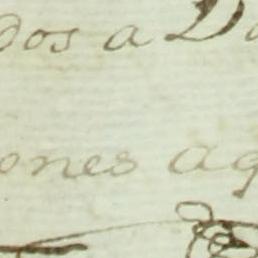 dos a D
ones ag